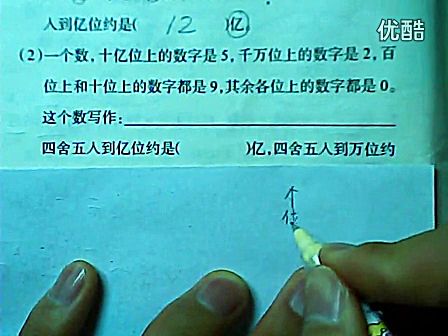 优酷
人到亿位约是( 12 )亿。
(2)一个数,十亿位上的数字是5,千万位上的数字是2,百
位上和十位上的数字都是9,其余各位上的数字都是0。
这个数写作:
四舍五人到亿位约是( )亿,四舍五人到万位约
个
位